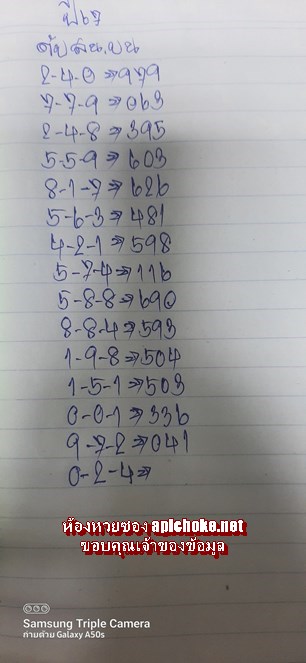 ปี 67
ดับ สิบ.บน
2-4-0⇒979
7-7-9⇒063
2-4-8⇒395
5-5-9⇒603
8-1-7⇒626
5-6-3⇒481
4-2-1⇒598
5-7-4⇒116
5-8-8⇒690
8-8-4⇒593
1-9-8⇒504
1-5-1⇒503
0-0-1⇒336
9-7-2⇒041
0-2-4⇒
ห้องหวยซอง apichoke.net
ขอบคุณเจ้าของข้อมูล
Samsung Triple Camera
ถ่ายด้วย Galaxy A50s